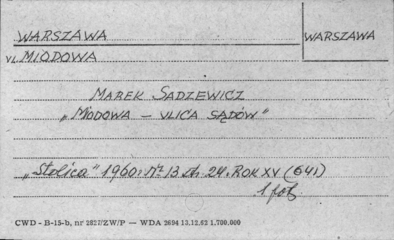 WARSZAWA WARSZAWA
UL. MIODOWA
MAREK SADZEWICZ
„MIODOWA – ULICA SĄDÓW”
„Stolica” 1960: Nr 13 str. 24. ROK XV (641)
1 fot
CWD - B-15-b, nr 2827/ZW/P — WDA 2694 13.12.62 1.700.000